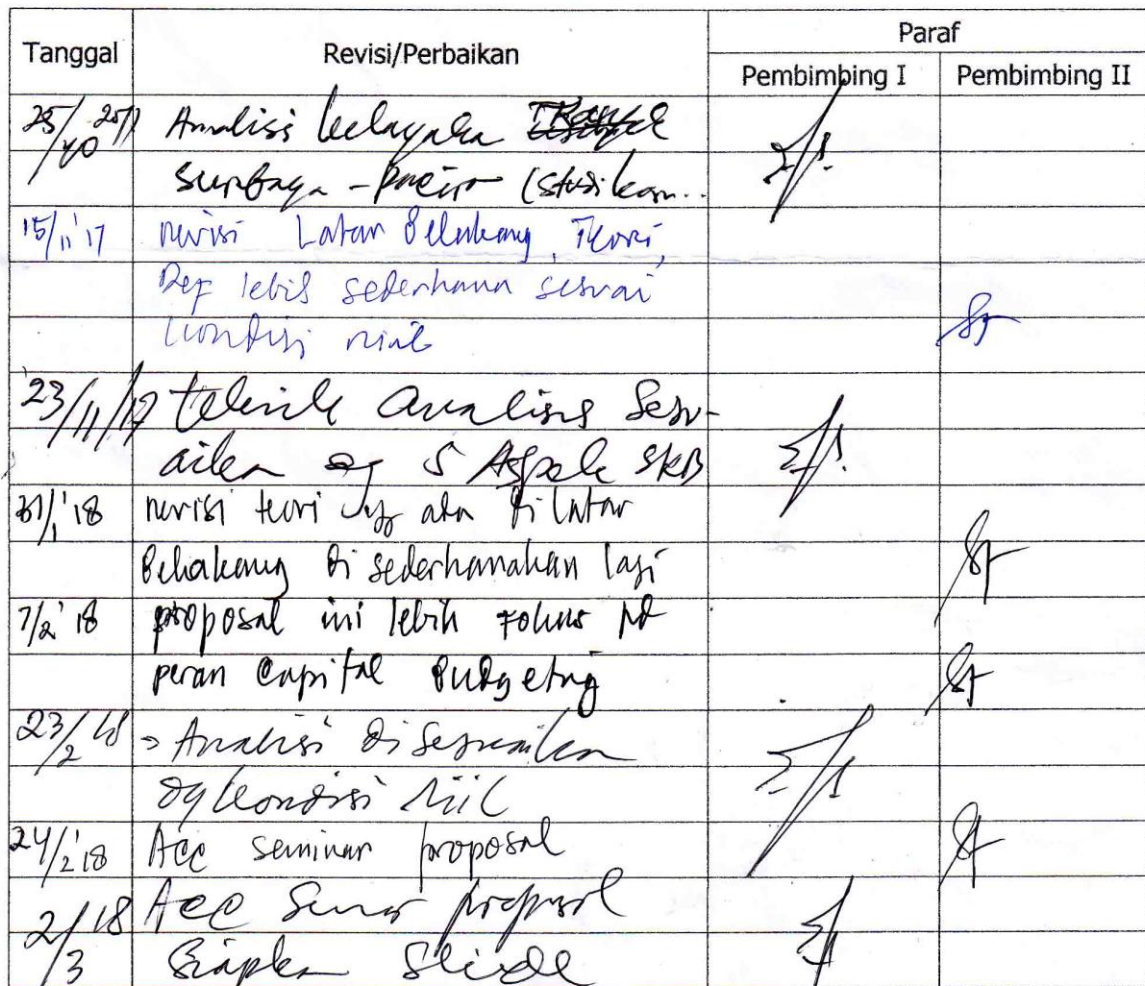 Tanggal Revisi/Perbaikan Paraf
Pembimbing I Pembimbing II
25/10 2017 Analisi kelayaka
Surabaya - Paciran (Studi kasus..
15/11'17 revisi Latar Belakang, Teori,
Def lebih sederhana sesuai
kondisi riil
23/11/17 teknik analisis Sesu-
aikan dg 5 Aspek SKB
31/1'18 revisi teori yg ada di latar
Belakang di sederhanakan lagi
7/2'18 proposal ini lebih Fokus pd
peran Capital Budgeting
23/2 18 Analisi disesuaikan
dg kondisi riil
24/2'18 Acc seminar proposal
2/3 18 Acc proposal
Siapkan Slide